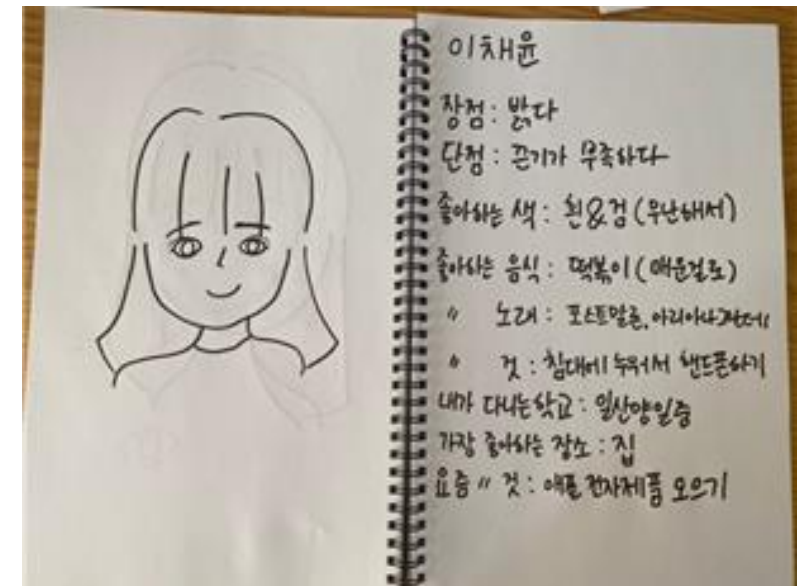 이채윤
장점 : 밝다
단점 : 끈기가 부족하다
좋아하는 색 : 흰&검 (무난해서)
좋아하는 음식 : 떡볶이 (매운걸로)
〃 노래 : 포스트말론, 아리아나그란데
〃 것 : 침대에 누워서 핸드폰하기
내가 다니는학교 : 일산양일중
가장 좋아하는 장소 : 집
요즘 〃 것 : 애플 전자제품 모으기